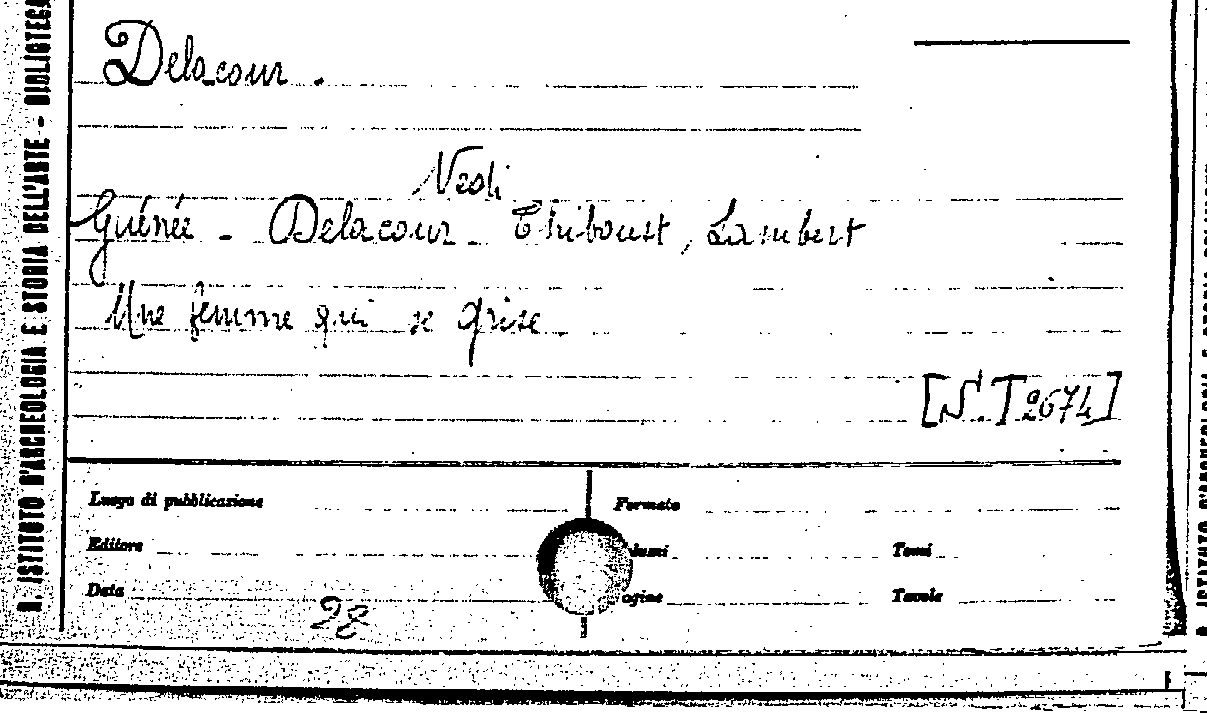 R. ISTITUTO D'ARCHEOLOGIA E STORIA DELL'ARTE - BIBLIOTECA
Delacour.
Vedi
Guénée - Delacour - Thiboust, Lambert
Une femme qui se grise.
[N.T 2674]
Luogo di pubblicazione
Formato
Editore
lumi
Tomi
Data
agine
Tavole
28